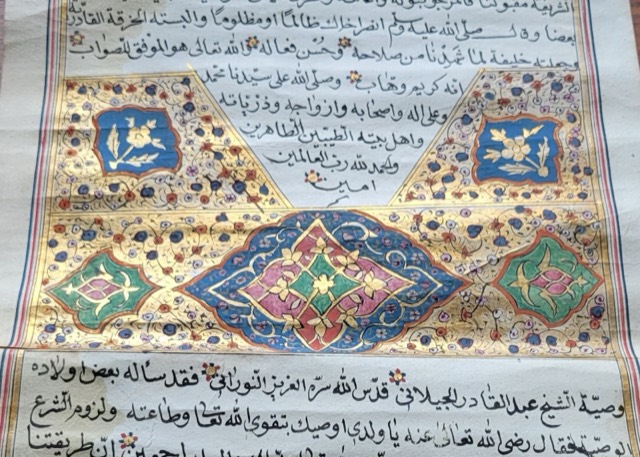 بعضا وقال صلى الله عليه وسلم انصر اخاك ظالما او مظلوما والبسته الخرقة القادرية
وجعلته خليفة لما شهدنا من صلاحه وحسن فعاله والله تعالى هو الموفق للصواب
انه كريم وهاب وصلى الله على سيدنا محمد
وعلى اله واصحابه وازواجه وذرياته
واهل بيته الطيبين الطاهرين
والحمد لله رب العالمين
امين
وصية الشيخ عبد القادر الجيلاني قدس الله سره العزيز النوراني فقد سأله بعض اولاده
الوصية فقال رضي الله تعالى عنه يا ولدي اوصيك بتقوى الله تعالى وطاعته ولزوم الشرع
ان طريقتنا